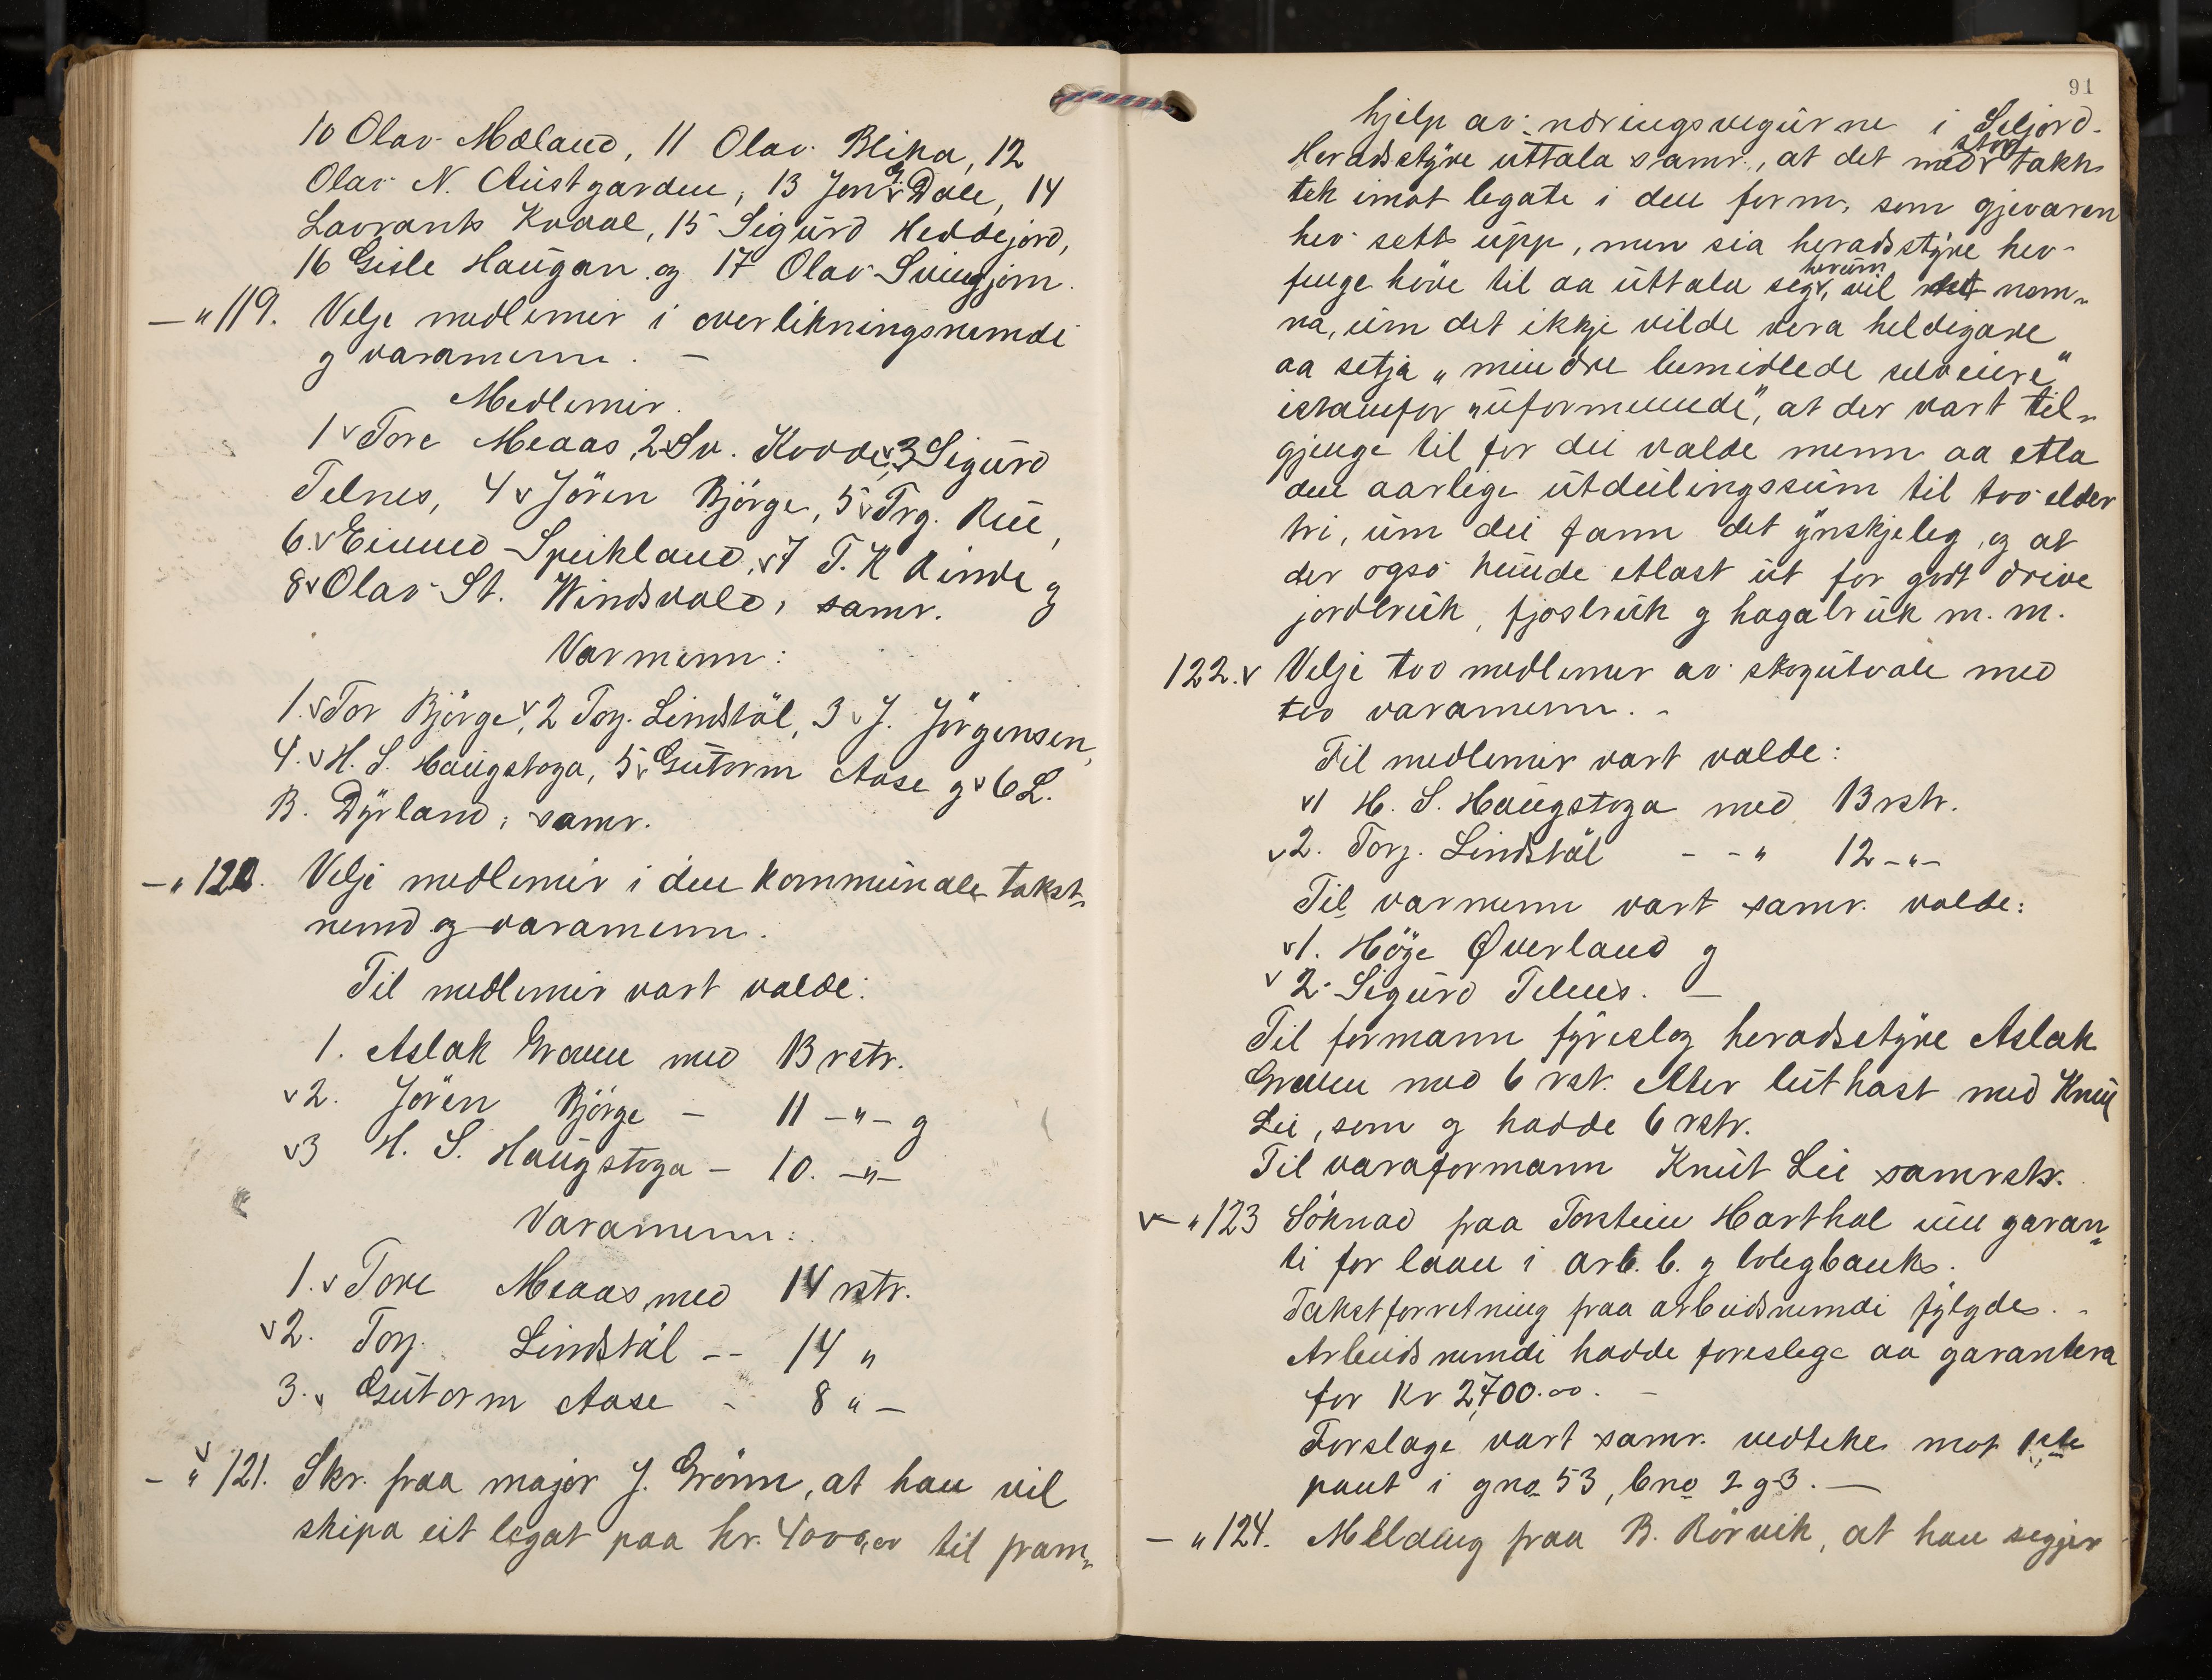 10 Olav Mæland, 11 Olav Blika, 12
Olav N. Austgarden, 13 Jon G. Dale, 14
Lavrants Kvaal, 15 Sigurd Heddejord,
16 Gisle Haugan og 17 Olav Svingjom.
— " 119. Velje medlemir i overlikningsnemdi
og varamenn. —
Medlemir.
1 v Tore Meaas, 2 v Sv. Kovde, v 3 Sigurd
Telnes, 4 v Jören Björge, 5 v Trg. Rue,
6. v Eivind Speikland, v 7 T. K Rinde og
8 v Olav St. Windsvald, samr.
Varmenn:
1. v Tor Björge, v 2 Torj. Lindstöl, 3 v J. Jörgensen,
4. v H. S. Haugstoga, 5 v Gutorm Aase og v 6 L.
B. Dyrland, samr.
— " 120. Velje medlemir i den kommunale takst-
nemd og varamenn.
Til medlemir vart valde:
1. Aslak Graven med 13 rstr.
v 2. Jören Björge — 11 — " — og
v 3 H. S. Haugstoga — 10. — " —
Varamenn:
1. v Tore Meaas med 14 rstr.
v 2. Torj. Lindstöl - - 14 "
3. v Gutorm Aase - 8 " —
— v " 121. Skr. fraa major J. Grönn, at han vil
skipa eit legat paa kr. 4000,00 til fram-
91
hjelp av næringsvegurne i Seljord.
stor
Heradsstyre uttala samr., at det med v takk
tek imot legate i den form, som gjevaren
hev sett upp, men sia heradsstyre hev
herum
fenge höve til aa uttala seg v, vil det nem-
na, um det ikkje vilde vera heldigare
aa setja "mindre bemidlede selveiere"
istaenfor "uformuende", at der vart til-
gjenge til for dei valde menn aa etla
den aarlege utdeilingssum til tvo elder
tri, um dei fann det ynskjeleg, og at
der ogso kunde etlast ut for godt drive
jordbruk, fjosbruk og hagabruk m. m.
122. v Velje tvo medlemer av skogutvale med
tvo varamenn. -
Til medlemir vart valde:
v 1 H. S. Haugstoga med 13 rstr.
v 2. Torj. Lindstöl - - " 12 - " -
Til varmenn vart samr. valde:
v 1. Höge Øverland og
v 2. Sigurd Telnes. —
Til formann fyreslog heradsstyre Aslak
Graven med 6 rst. etter lutkast med Knut
Lie, som og hadde 6 rstr.
Til varaformann Knut Lie samrstr.
v — " 123 Söknad fraa Torstein Harthol um garan-
ti for laan i arb. b. og bolegbank.
Takstforretning fraa arbeidsnemdi fylgde. -
Arbeidsnemdi hadde foreslege aa garantera
for Kr 2,700.00. —
Forslage vart samr. vedteke mot 1ste
pant i gno 53, bno 2 og 3. —
— " 124. Melding fraa B. Rörvik, at han segjer